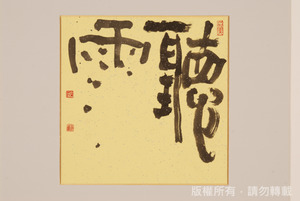 聽
雨
版權所有．請勿轉載